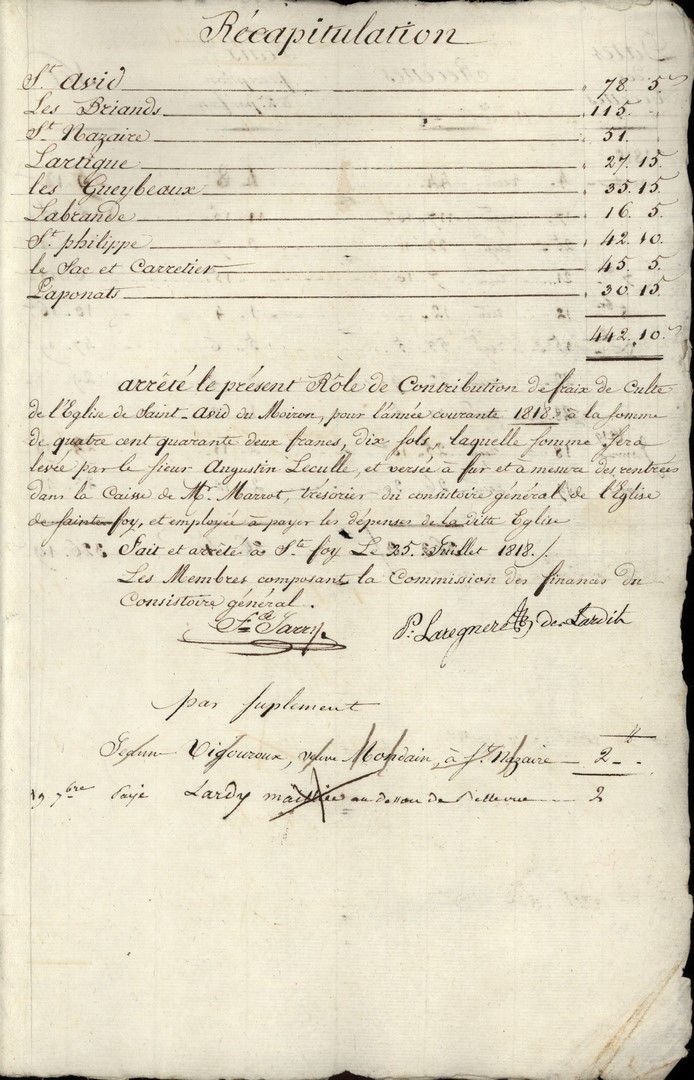 Récapitulation
St. Avid 78. 5.
Les Briands 115.
St. Nazaire 51.
Lartigue 27. 15.
les Gueybeaux 35. 15.
Labrande 16. 5.
St. philippe 42. 10.
le Sac et Carretier 45. 5.
Paponats 30. 15.
442. 10.
arrêté le présent Rôle de Contribution de fraix de Culte
de l'Eglise de Saint-Avid du Moiron, pour l'année courante 1818. à la somme
de quatre cent quarante deux francs, dix sols, laquelle somme sera
levée par le sieur Augustin Leculle, et versée à fur et a mesure des rentrées
dans la Caisse de Mr. Marrot, trésorier du consistoire général de l'Eglise
de sainte foy, et employée à payer les dépenses de la dite Eglise
Fait et arrêté à Ste foy Le 25. Juillet 1818.
Les Membres composant la Commission des finances du
Consistoire général.
Jarry. P: Laregnere de Lardit
par suplement
Vigouroux, veuve Mondain, à St. Nazaire 2 - .
19 7bre Payé Lardy au dessou de Bellevue 2